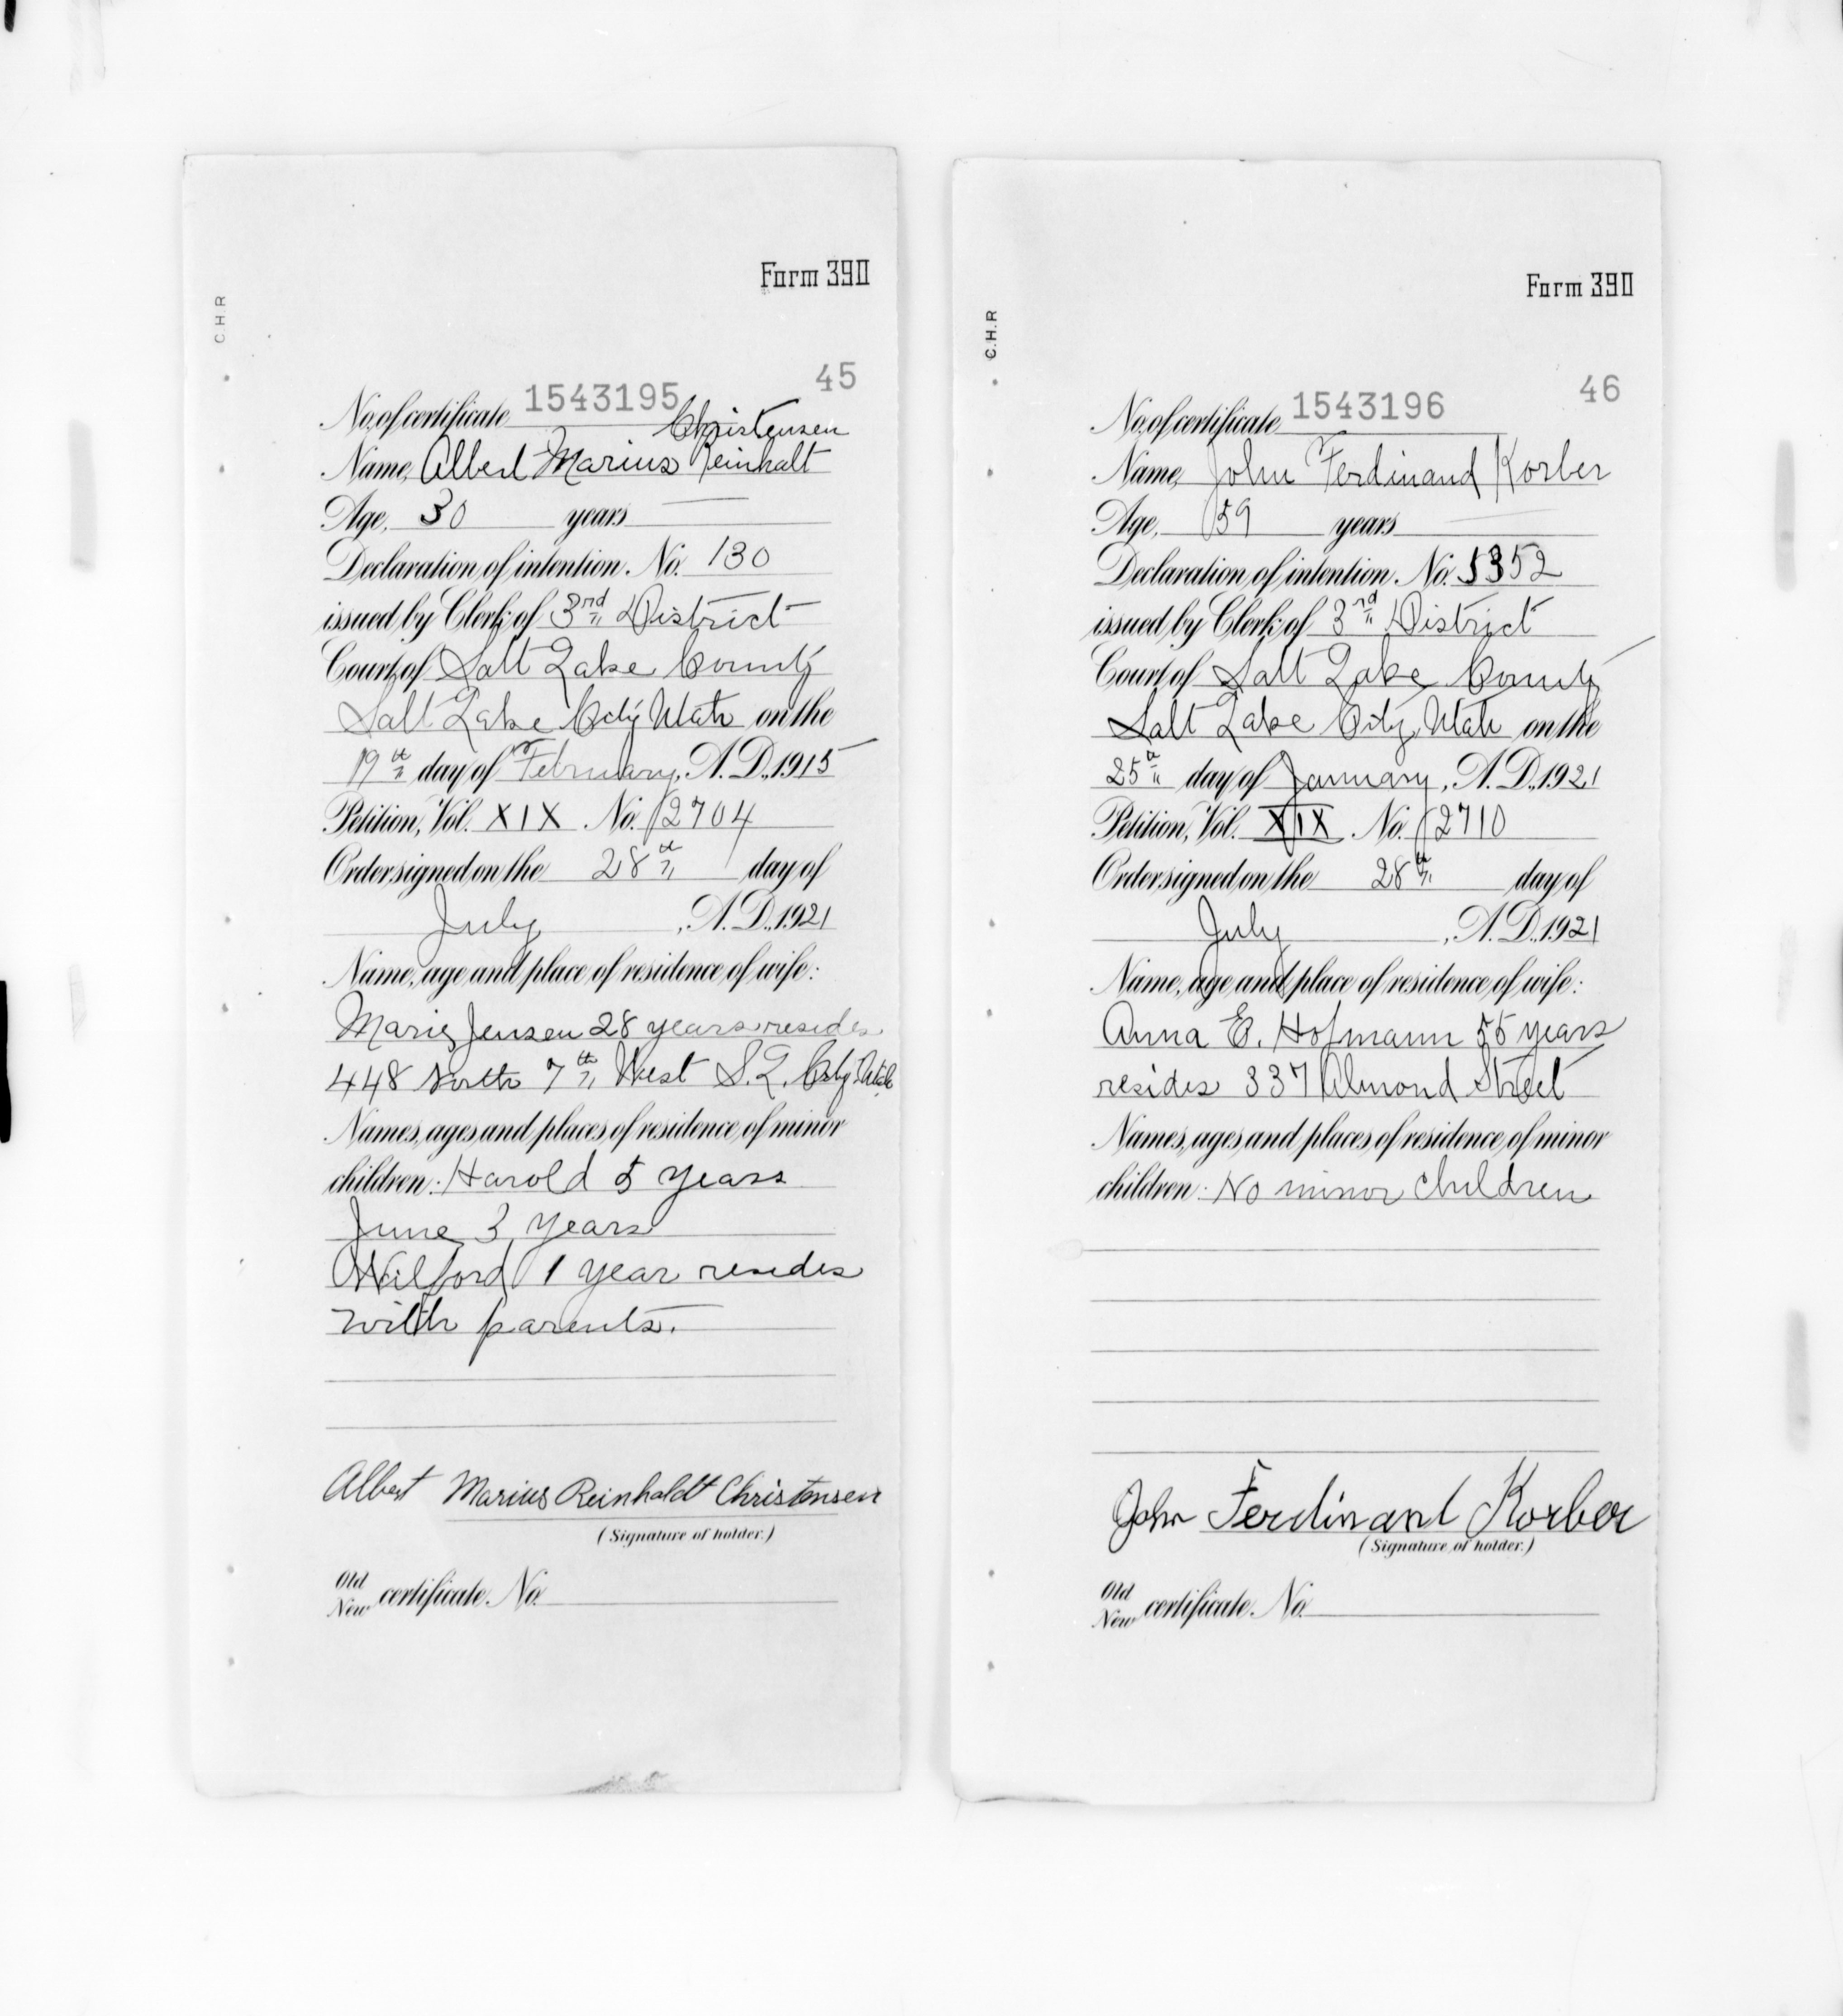 Form 390
C.H.R
45
No. of certificate 1543195
Christensen
Name, Albert Marius Reinhalt
Age, 30 years
Declaration of intention. No. 130
issued by Clerk of 3rd District
Court of Salt Lake County
Salt Lake City Utah on the
19th day of February, A.D., 1915
Petition, Vol. XIX No. 2704
Order signed on the 28th day of
July, A.D., 1921
Name, age and place of residence of wife:
Marie Jensen 28 years resides
448 North 7th West S.L. City Utah
Names, ages and places of residence of minor
children: Harold 5 years
June 3 years
Wilford 1 year resides
with parents.
Albert Marius Reinholdt Christensen
(Signature of holder.)
Old
New certificate No.
Form 390
C.H.R
46
No. of certificate 1543196
Name, John Ferdinand Korber
Age, 59 years
Declaration of intention. No. 5352
issued by Clerk of 3rd District
Court of Salt Lake County
Salt Lake City, Utah on the
25th day of January, A.D., 1921
Petition, Vol. XIX No. 2710
Order signed on the 28th day of
July, A.D., 1921
Name, age and place of residence of wife:
Anna E. Hofmann 55 years
resides 337 Almond Street
Names, ages and places of residence of minor
children: No minor children
John Ferdinand Korber
(Signature of holder.)
Old
New certificate No.